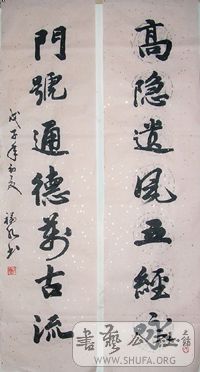 高隐遗風五經
門號通德萬古流
戊子年初夏
書藝公社
WWW.SHUFA.ORG